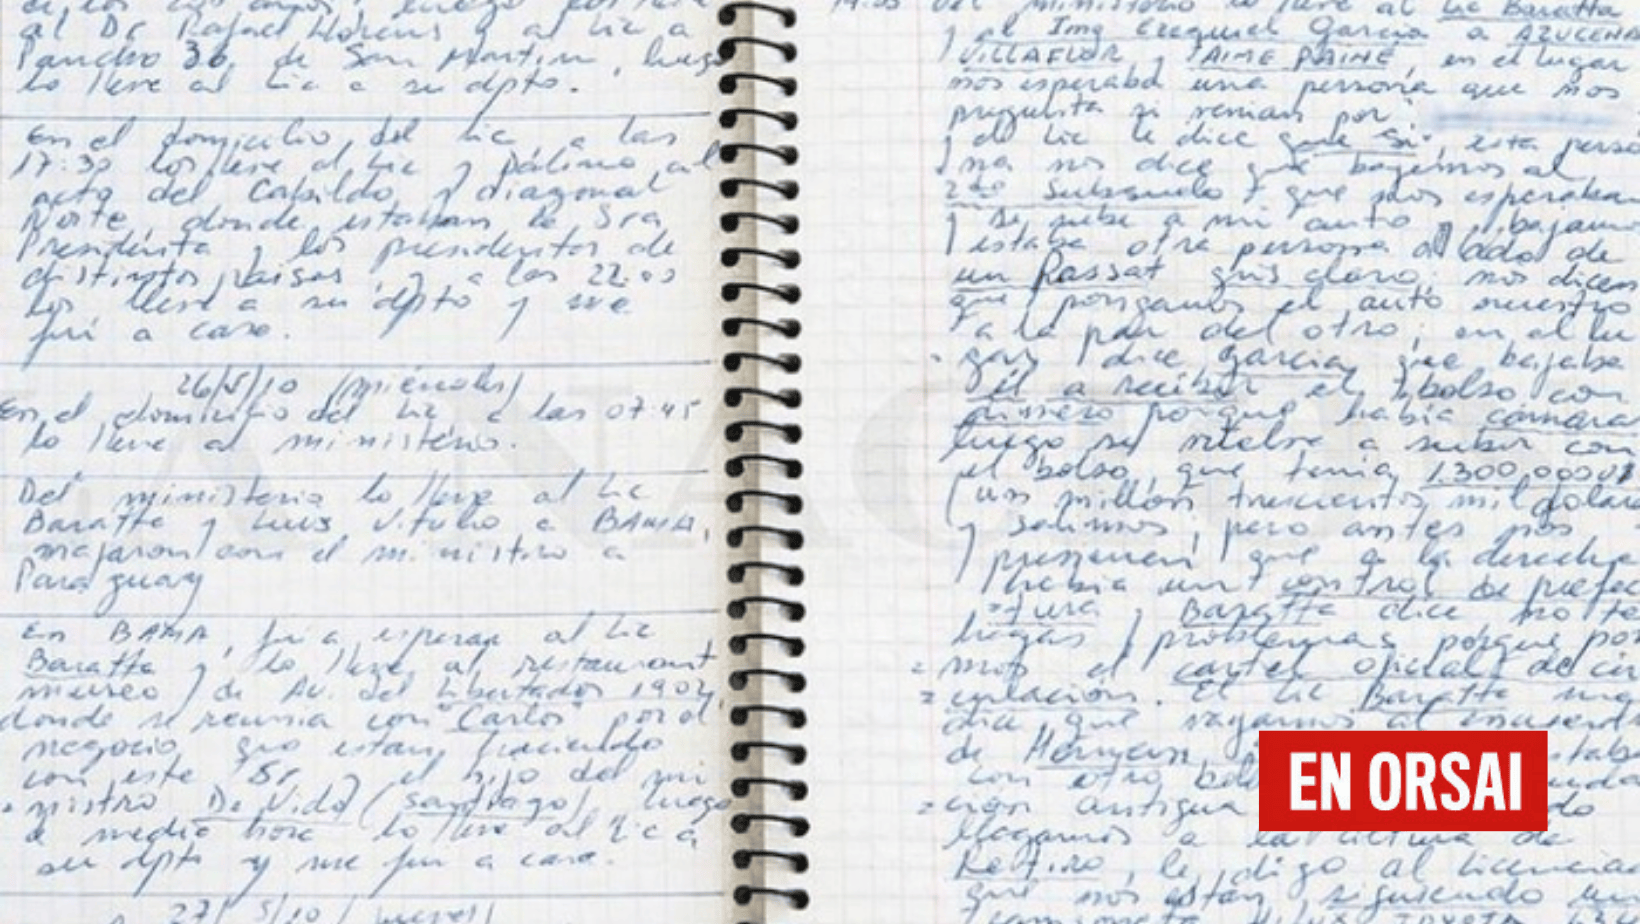 al Dr Rafael Llorens y al Lic a
Pancho 36, de San Martin, luego
lo lleve al Lic a su dpto.
En el domicilio del Lic, a las
17:30 los lleve al Lic y Palimo al
acto del Cabildo y diagonal
Norte, donde estaban la Sra
Presidenta y los presidentes de
distintos paises, y a las 22:00
los lleve a su dpto y me
fui a casa.
26/5/10 (miercoles)
En el domicilio del Lic a las 07:45
lo lleve al ministerio.
Del ministerio lo lleve al Lic
Baratta y Luis Vitullo a BAMA,
viajaron con el ministro a
Paraguay
En BAMA, fui a esperar al Lic
Baratta y lo lleve al restaurant
museo de Av. del Libertador 1902,
donde se reunia con "Carlos" por el
negocio que estan haciendo
con este Sr y el hijo del mi
nistro De Vido (Santiago) luego
a media hora lo lleve al Lic a
su dpto y me fui a casa.
27/5/10 (jueves)
14:05 del ministerio lo lleve al Lic Baratta
y al Ing Ezequiel Garcia a AZUCENA
VILLAFLOR y AIME PAINE, en el lugar
nos esperaba una persona que nos
pregunta si venian por
y el Lic le dice que si, esta perso
na nos dice que bajemos al
2do subsuelo y que nos esperaban
y se sube a mi auto, bajamos
y estaba otra persona al lado de
un Passat gris claro; nos dicen
que pongamos el auto nuestro
a la par del otro; en el lu
gar dice Garcia que bajaba
el a recibir el bolso con
dinero porque habia camara
luego se vuelve a subir con
el bolso, que tenia 1.300.000 U$
(un millon trescientos mil dolare
y salimos, pero antes nos
previenen que a la derecha
habia un control de prefec
tura y Baratta dice no te
hagas problemas porque por
mos el cartel oficial de cir
culacion. El Lic Baratta me
dice que vayamos al encuentro
de Hernan, estaba
con otro
cion antigua
llegamos a la altura de
Retiro, le digo al Licencia
que nos estan siguiendo un
EN ORSAI
LA NACION